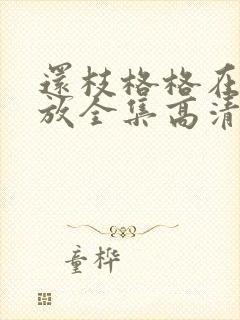 還枝格格在
放全集高清
童桦